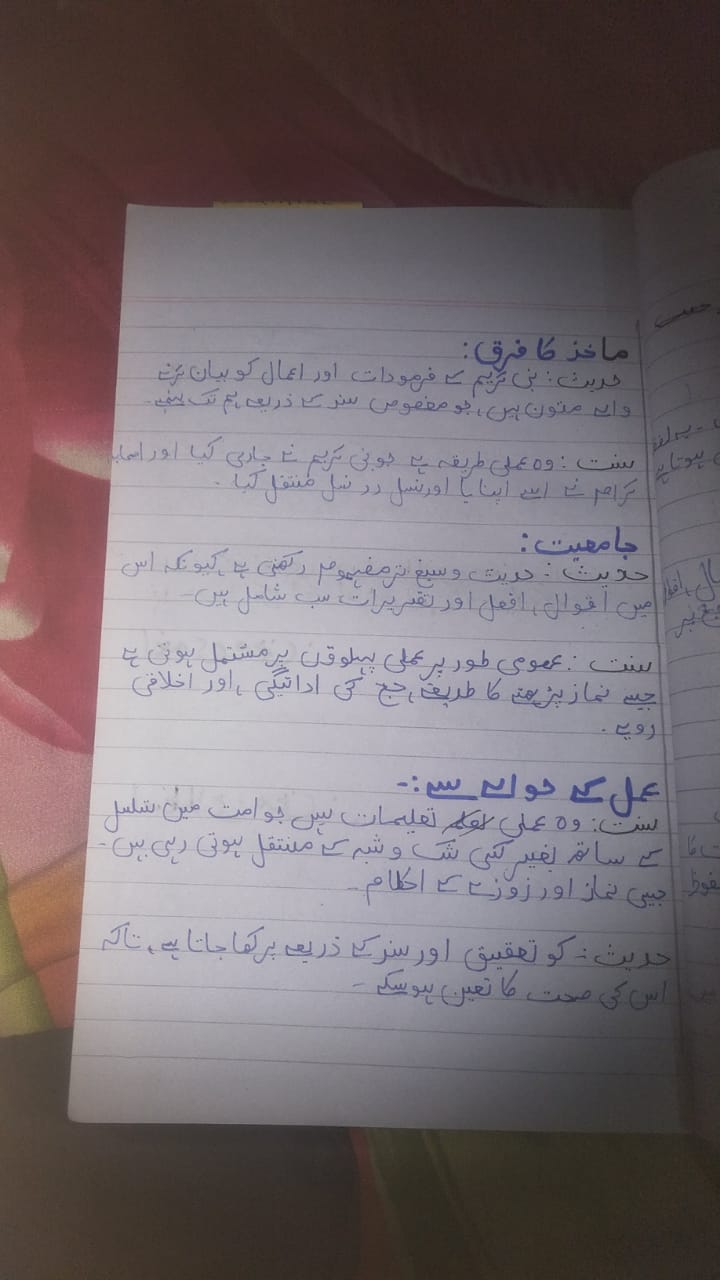 ماخذ کا فرق:
حدیث: نبی کریم کے فرمودات اور اعمال کو بیان کرنے
والے متون ہیں، جو مخصوص سند کے ذریعے ہم تک پہنچے۔
سنت: وہ عملی طریقہ ہے جو نبی کریم نے جاری کیا اور اصحابہ
کرام نے اسے اپنایا اور نسل در نسل منتقل کیا۔
جامعیت:
حدیث: حدیث وسیع تر مفہوم رکھتی ہے کیونکہ اس
میں اقوال، افعل اور تقریرات سب شامل ہیں۔
سنت: عمومی طور پر عملی پہلوؤں پر مشتمل ہوتی ہے
جیسے نماز پڑھنے کا طریقہ، حج کی ادائیگی، اور اخلاقی
رویے۔
عمل کے حوالے سے:-
سنت: وہ عملی تعلیمات ہیں جو امت میں تسلسل
کے ساتھ بغیر کسی شک و شبہ کے منتقل ہوتی رہی ہیں۔
جیسی نماز اور روزے کے احکام۔
حدیث: کو تحقیق اور سند کے ذریعے پرکھا جاتا ہے، تاکہ
اس کی صحت کا تعین ہو سکے۔